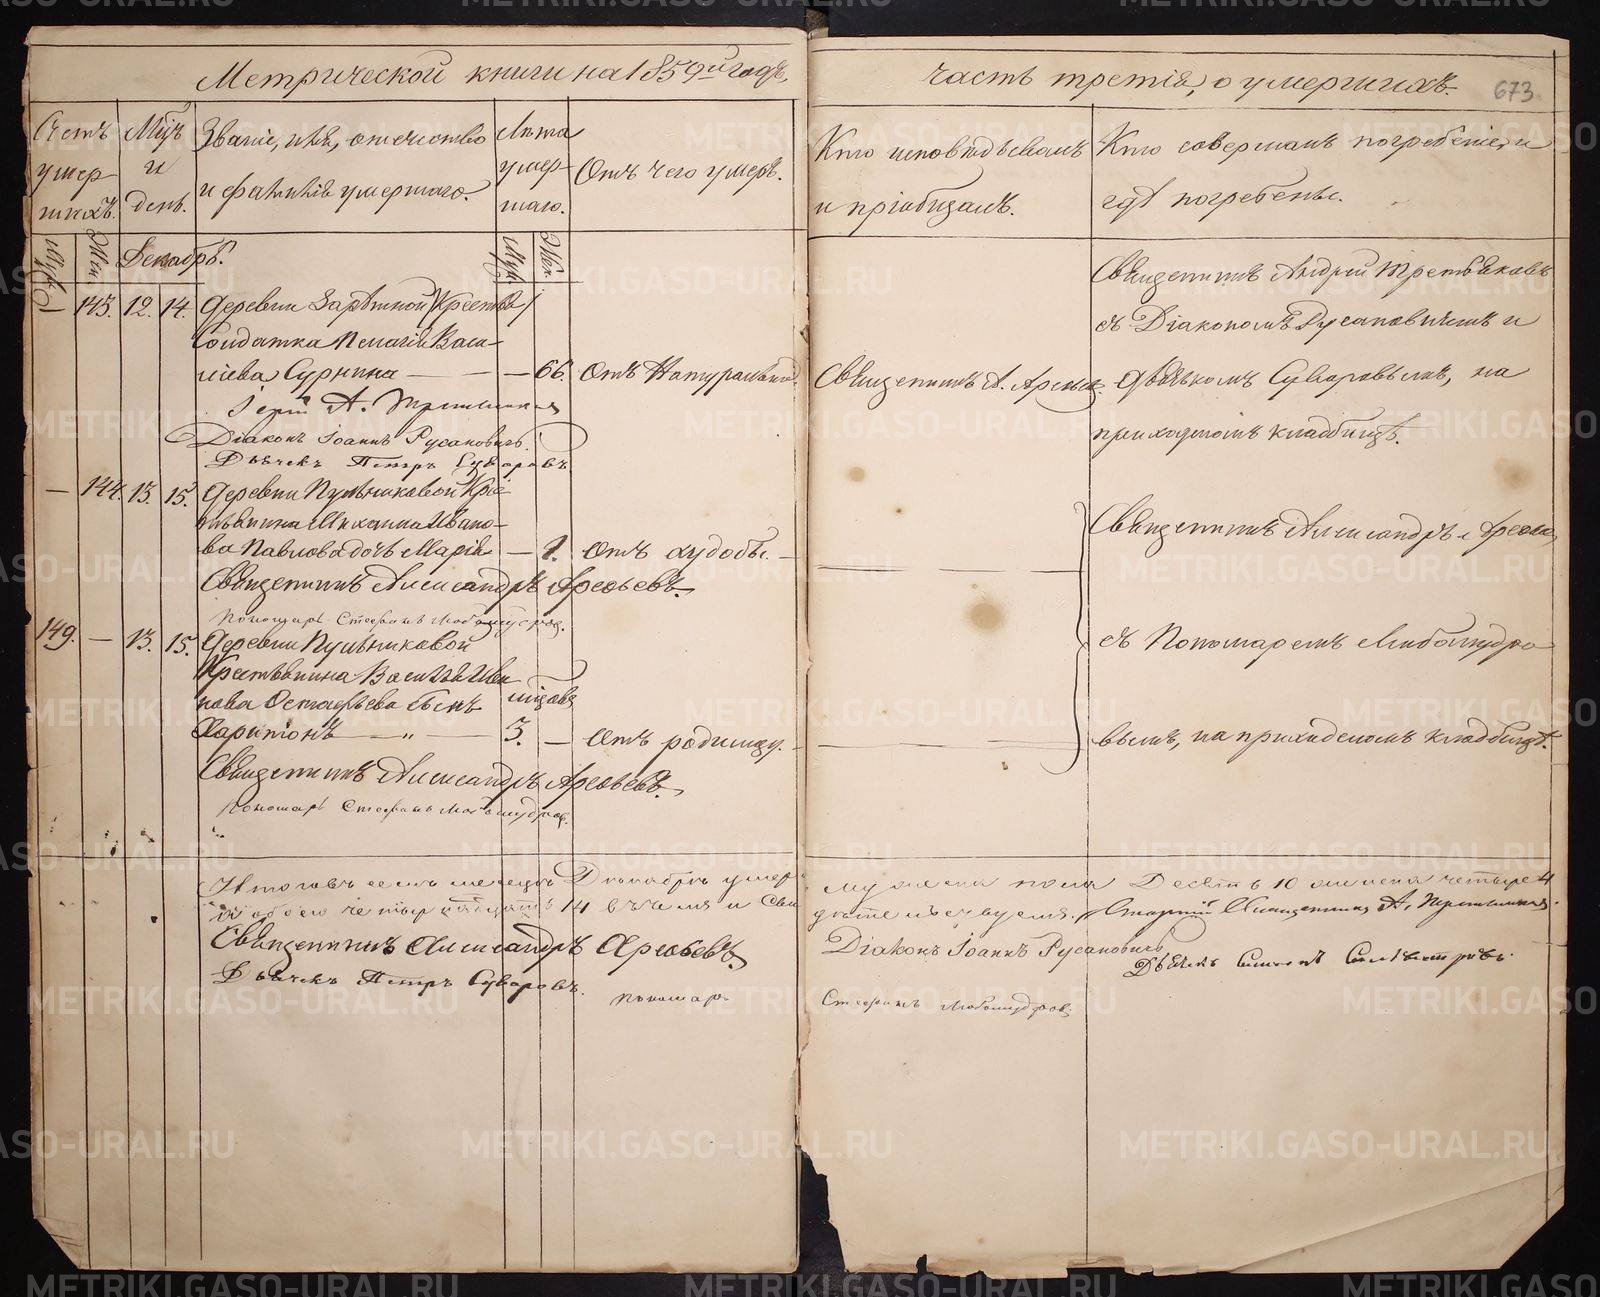 Метрической книги на 1859й годъ,
часть третія, о умершихъ.
673
Счетъ умершихъ.
Мцъ и день.
Званіе, имя, отечество и фамилія умершаго.
Лѣта умершаго.
Отъ чего умеръ.
Кто исповѣдывалъ и пріобщалъ.
Кто совершалъ погребеніе, и гдѣ погребены.
Муж.
Жен.
Декабрь.
Муж.
Жен.
143. 12. 14. Деревни Зарѣчной
Солдатка Пелагія Васи-
ліева Сурнина — — 66. Отъ Натуральной.
Іерей А. Третьяковъ
Діаконъ Іоаннъ Русановичъ.
Дьячекъ Петръ Суворовъ.
Священникъ А.
Священникъ Андрей Третьяковъ
съ Діакономъ Русановичемъ и
дьячкомъ Суворовымъ, на
приходскомъ кладбищѣ.
— 144. 13. 15. Деревни Крес-
тьянина Михаила Ивано-
ва Павлова дочь Марія — 1. отъ худобы. —
Священникъ Александръ Арефьевъ.
Пономарь Стефанъ Любомудров.
149. — 13. 15. Деревни
Крестьянина Василія Ива
нова сынъ
Харитонъ — „ — 3. — отъ родимцу. —
Священникъ Александръ Арефьевъ.
Пономарь Стефанъ Любомудров.
Священникъ Александръ Арефье
съ Пономаремъ Любомудро
вымъ, на приходскомъ кладбищѣ.
Итого въ семъ месяцѣ Декабрѣ умер мужеска пола Десять 10 женска четыре 4
а обоего четырнадцать 14
Старшій Священникъ А. Третьяковъ.
Священникъ Александръ Арефьевъ
Діаконъ Іоаннъ Русановичъ
Дьячекъ Петръ Суворовъ.
Дьячекъ
пономарь Стефанъ Любомудров.
METRIKI.GASO-URAL.RU